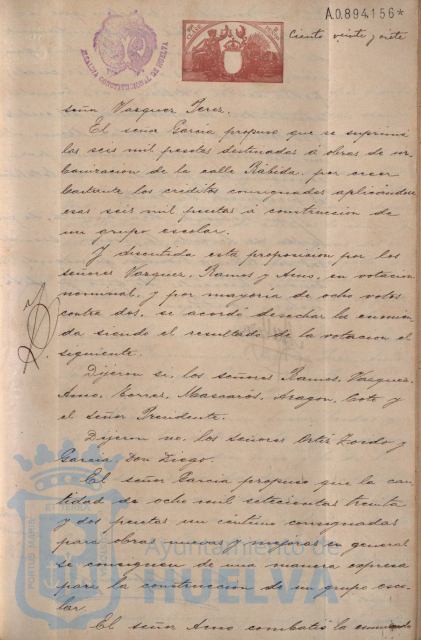 A.0.894.156*
Ciento veinte y siete
ALCALDIA CONSTITUCIONAL DE HUELVA
señor Vazquez Perez.
El señor García propuso que se suprima
las seis mil pesetas destinadas á obras de ur-
banización de la calle Rábida, por creer
bastante los créditos consignados aplicándose
esas seis mil pesetas á construcción de
un grupo escolar.
Y discutida esta proposición por los
señores Vazquez, Ramos y Amo, en votación
nominal, y por mayoría de ocho votos
contra dos, se acordó desechar la enmien-
da siendo el resultado de la votación el
siguiente.
Dijeron si, los señores Ramos, Vazquez,
Amo, Mascarós, Aragón, Coto y
el señor Presidente.
Dijeron no, los señores Ortiz Tordo y
García Don Diego.
El señor García propuso que la can-
tidad de ocho mil setecientas treinta
y dos pesetas un céntimo consignadas
para obras nuevas y mejoras en general
se consignen de una manera expresa
para la construcción de un grupo esco-
lar.
El señor Amo combatió la enmienda
PORTUS MARIS ET TERRAE CUSTODIA
Ayuntamiento de
HUELVA